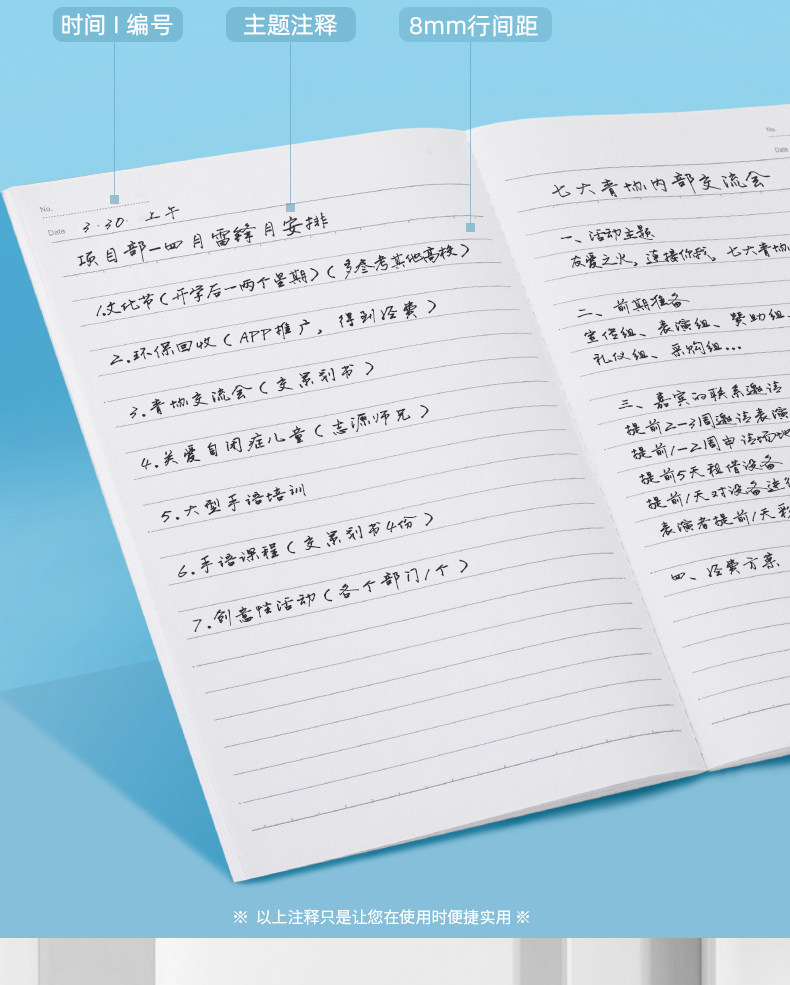 时间 | 编号
主题注释
8mm行间距
No.
Date 3.30. 上午
项目部—四月雷锋月安排
1.文化节(开学后一两个星期)(多参考其他高校)
2.环保回收(APP推广,得到经费)
3.青协交流会(交系列书)
4.关爱自闭症儿童(志源师兄)
5.大型手语培训
6.手语课程(交系列书4份)
7.创意性活动(各个部门1个)
No.
Date
七大青协内部交流会
一、活动主题
友爱之火,连接你我,七大青协
二、前期准备
宣传组、表演组、赞助组、
礼仪组、采购组...
三、嘉宾的联系邀请
提前2-3周邀请表演
提前1-2周申请场地
提前5天租借设备
提前1天对设备进行
表演者提前1天彩
四、经费方案
※ 以上注释只是让您在使用时便捷实用 ※